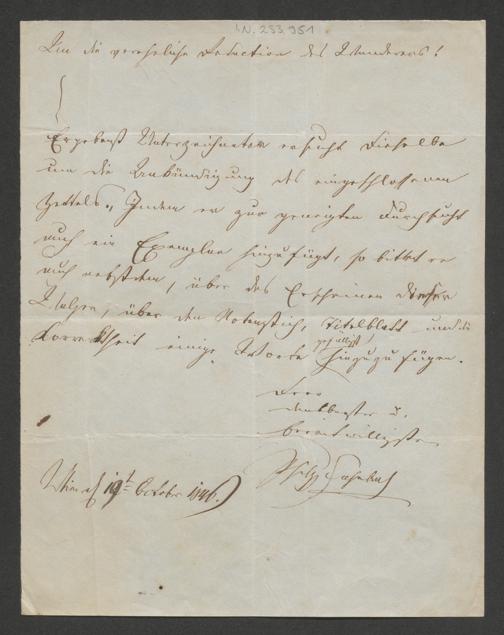 I.N. 253.951
An die verehrliche Redaction des Wanderers!
Ergebenst Unterzeichneter ersucht Dieselbe
um die Ankündigung des eingeschlossenen
Zettels. Indem er zur geneigten Durchsicht
auch ein Exemplar hinzufügt, so bittet er
auch nebstdem, über das Erscheinen dieser
Walzer, über den Notenstich, Titelblatt und die
Correktheit einige Worte gefälligst hinzuzufügen.
Dero
dankbarster u.
bereitwilligster
Wien 19t October 1846.